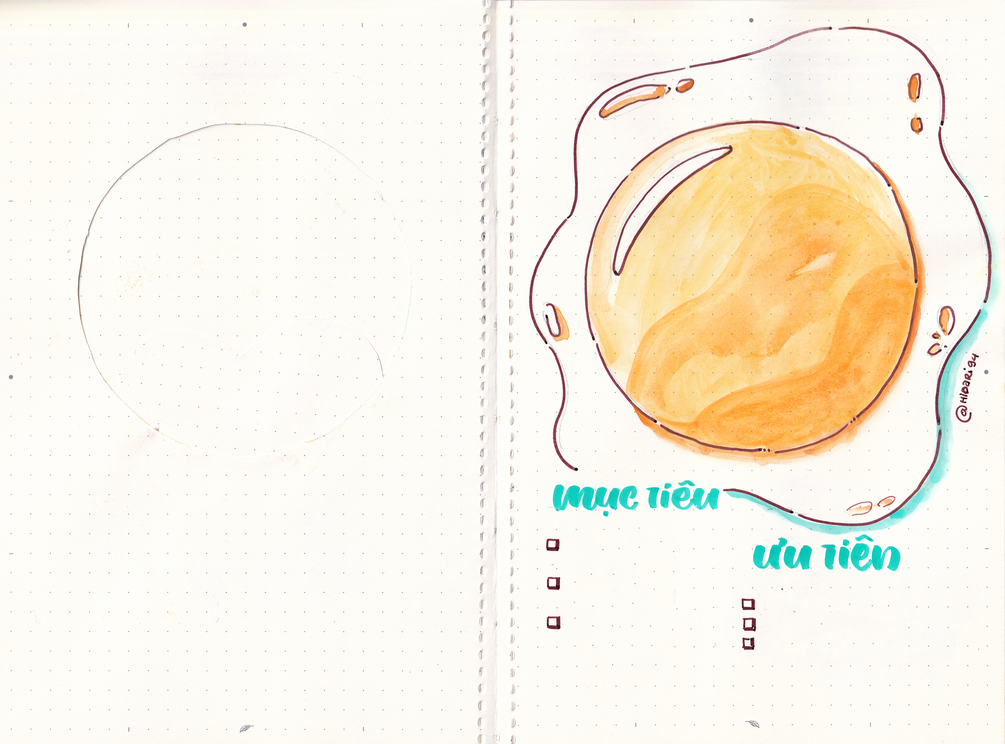 @HIDARI94
mục tiêu
ưu tiên